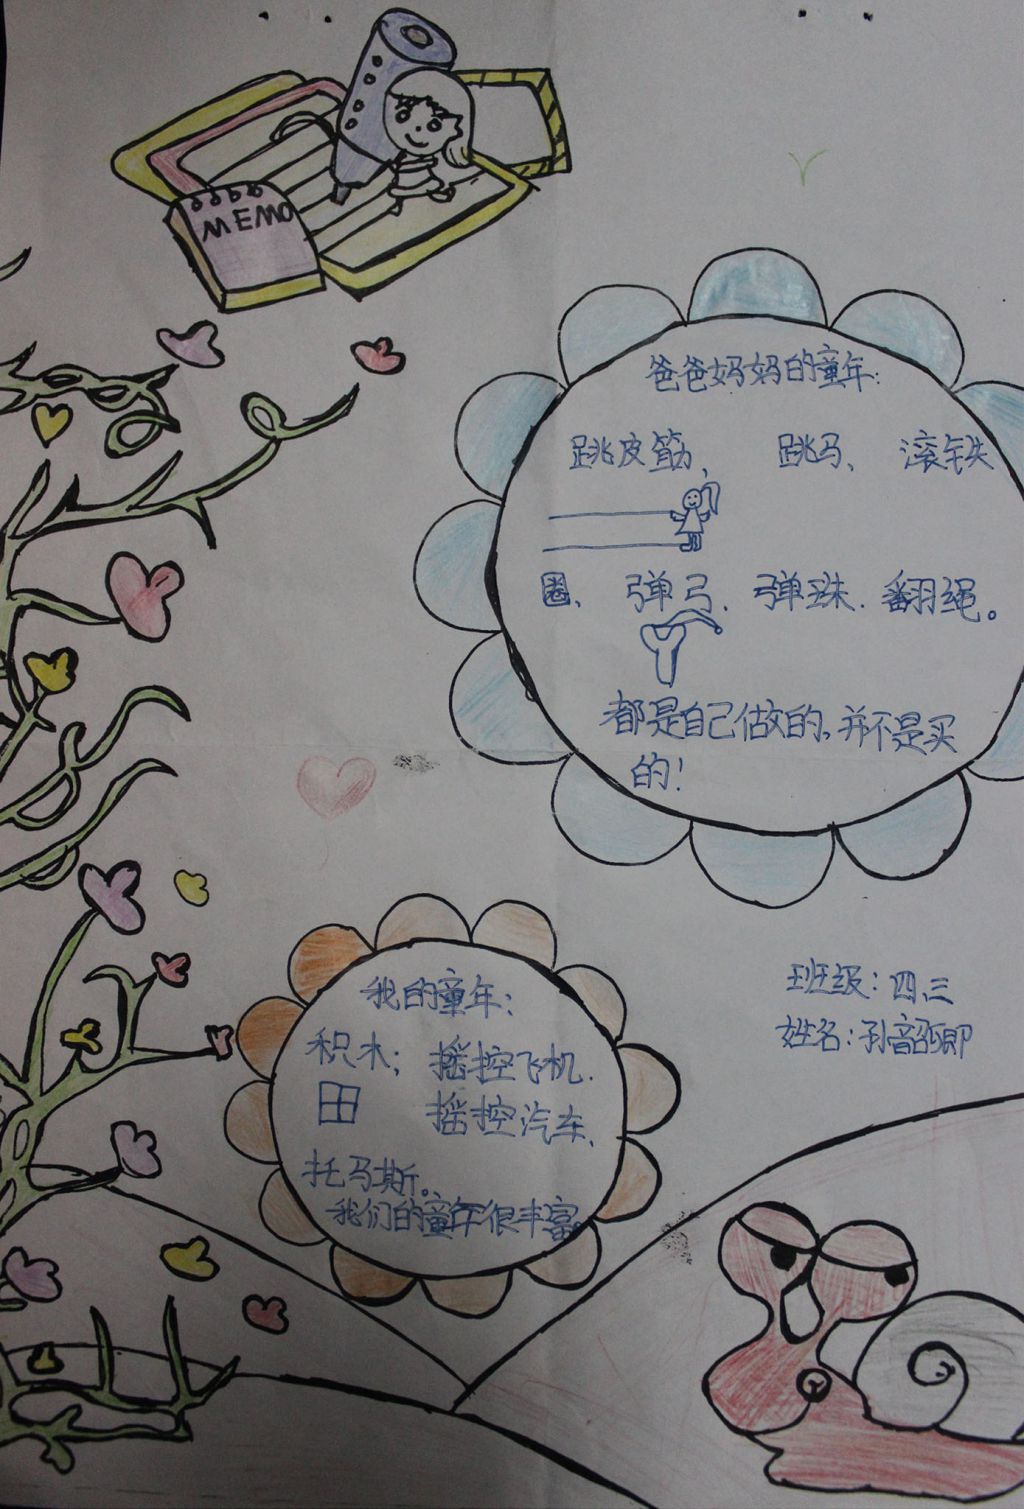 MEMO
爸爸妈妈的童年:
跳皮筋、 跳马、 滚铁
圈、 弹弓、弹珠、翻绳。
都是自己做的,并不是买
的!
我的童年:
积木; 摇控飞机.
摇控汽车、
托马斯。
我们的童年很丰富。
班级:四、三
姓名:孙韶